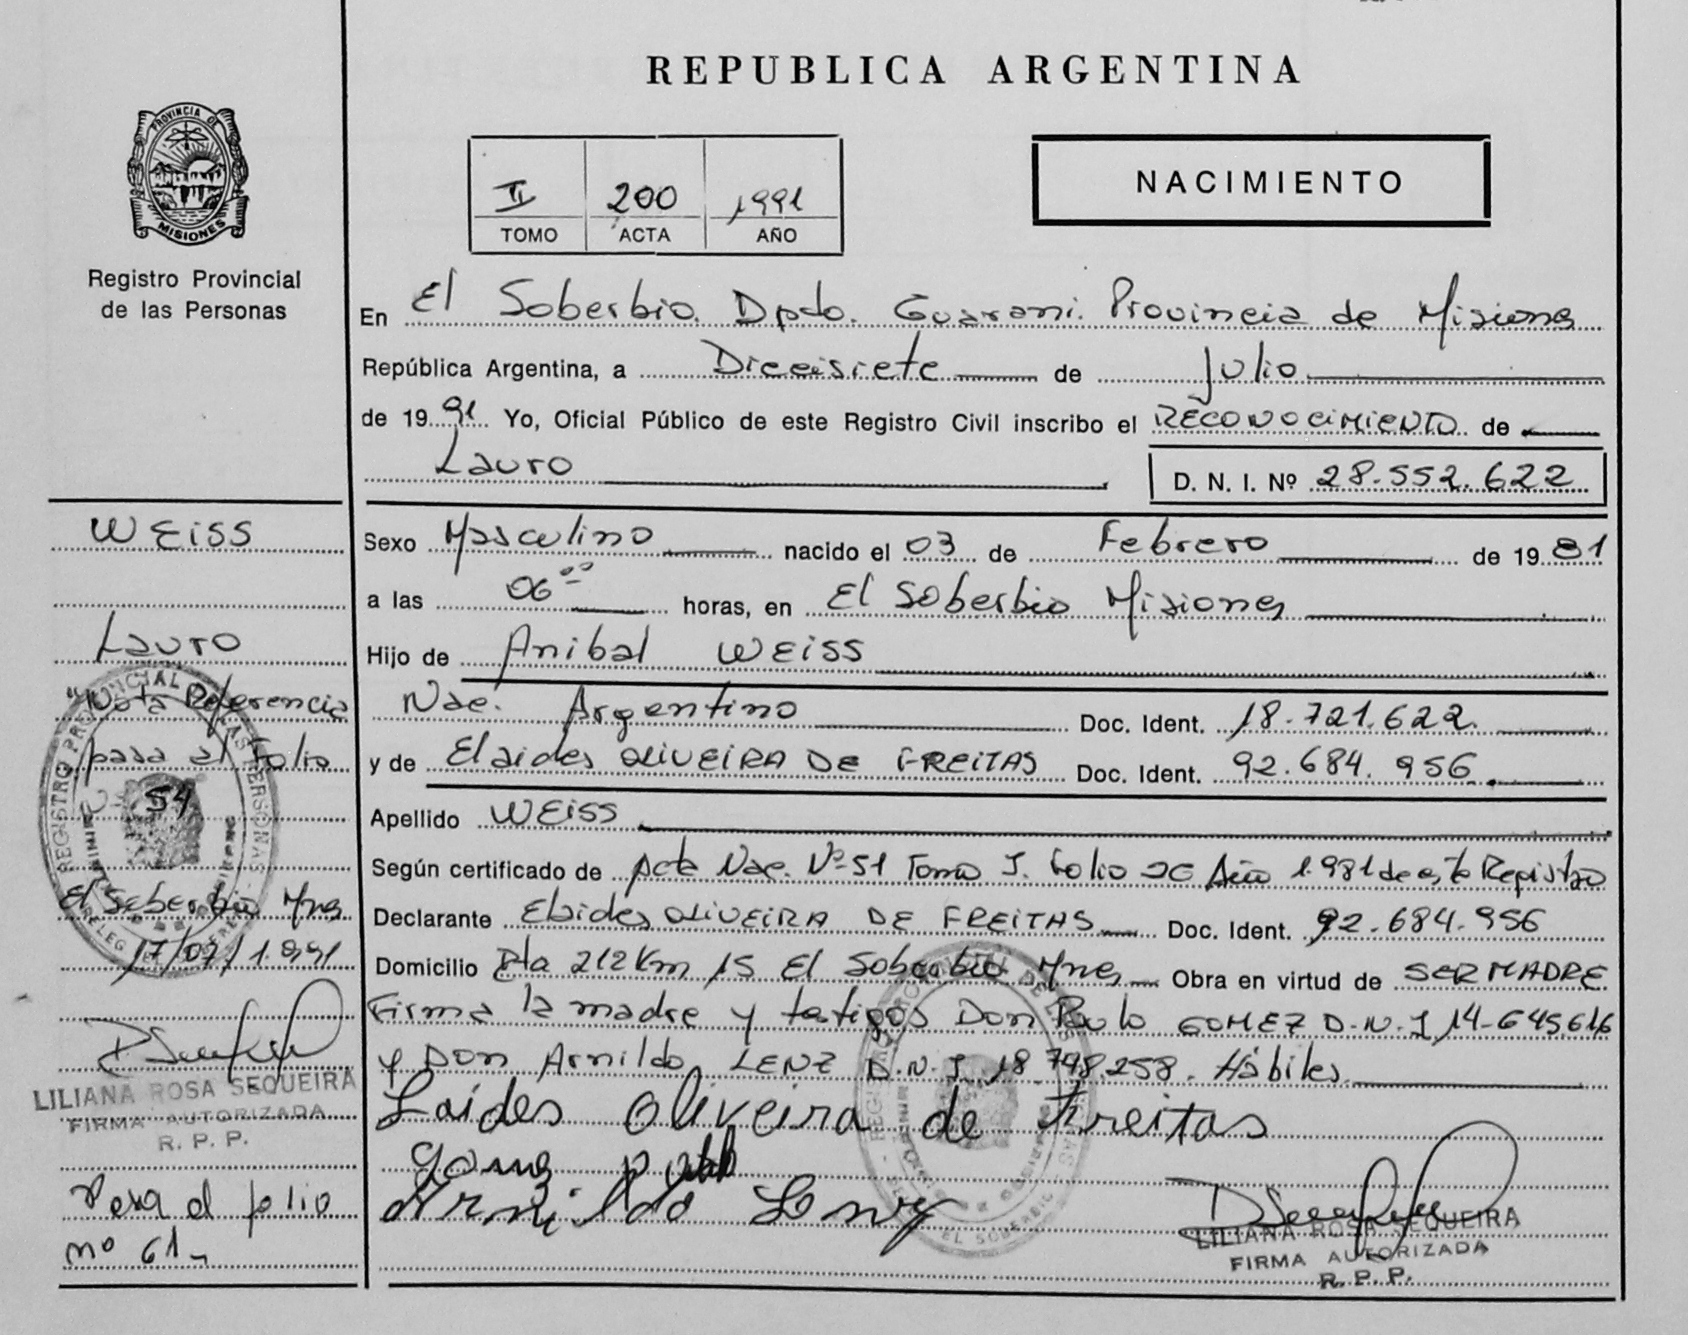 REPUBLICA ARGENTINA
PROVINCIA DE
MISIONES
Registro Provincial
de las Personas
II 200 1991
TOMO ACTA AÑO
NACIMIENTO
En El Soberbio. Dpdo. Guarani. Provincia de Misiones
República Argentina, a Diecisiete de Julio
de 1991 Yo, Oficial Público de este Registro Civil inscribo el RECONOCIMIENTO de
Lauro
D. N. I. Nº 28.552.622
WEISS
Lauro
"Nota Referencia
pasa al Folio
54
El Soberbio Mnes
17/07/1.991
LILIANA ROSA SEQUEIRA
FIRMA AUTORIZADA
R. P. P.
Pasa al folio
nº 61
Sexo Masculino nacido el 03 de Febrero de 1981
a las 06 00 horas, en El Soberbio Misiones
Hijo de Anibal WEISS
Nac. Argentino Doc. Ident. 18.721.622
y de Elaides OLIVEIRA DE FREITAS Doc. Ident. 92.684.956
Apellido WEISS
Según certificado de Acta Nac. Nº 51 Tomo I. Folio 26 Año 1.981 de este Registro
Declarante Elaides OLIVEIRA DE FREITAS Doc. Ident. 92.684.956
Domicilio Rta 212 Km 15 El Soberbio Mnes Obra en virtud de SER MADRE
Firma la madre y testigos Don Paulo GOMEZ D.N.I 14-645.616
y Don Arnildo LENZ D.N.I 18.748.258. Hábiles
Laides Oliveira de Freitas
Arnildo Lenz
LILIANA ROSA SEQUEIRA
FIRMA AUTORIZADA
R. P. P.